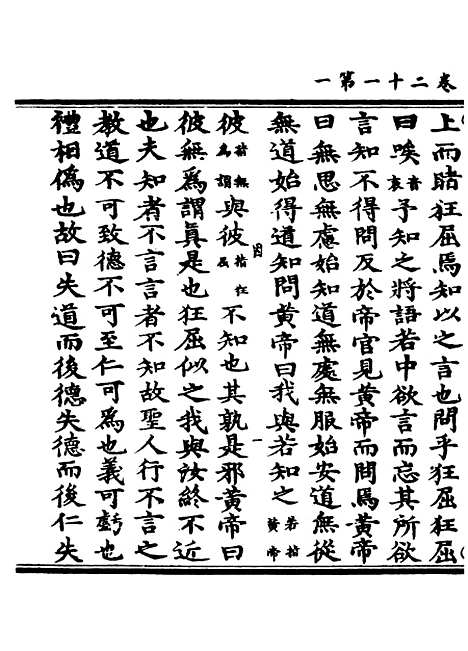 卷二十一第一
上而睹狂屈焉知以之言也問乎狂屈狂屈
曰唉音哀予知之將語若中欲言而忘其所欲
言知不得問反於帝官見黃帝而問焉黃帝
曰無思無慮始知道無處無服始安道無從
無道始得道知問黃帝曰我與若知之若指黃帝
彼指無爲謂與彼指狂屈不知也其孰是邪黃帝曰
彼無爲謂眞是也狂屈似之我與汝終不近
也夫知者不言言者不知故聖人行不言之
教道不可致德不可至仁可爲也義可虧也
禮相僞也故曰失道而後德失德而後仁失